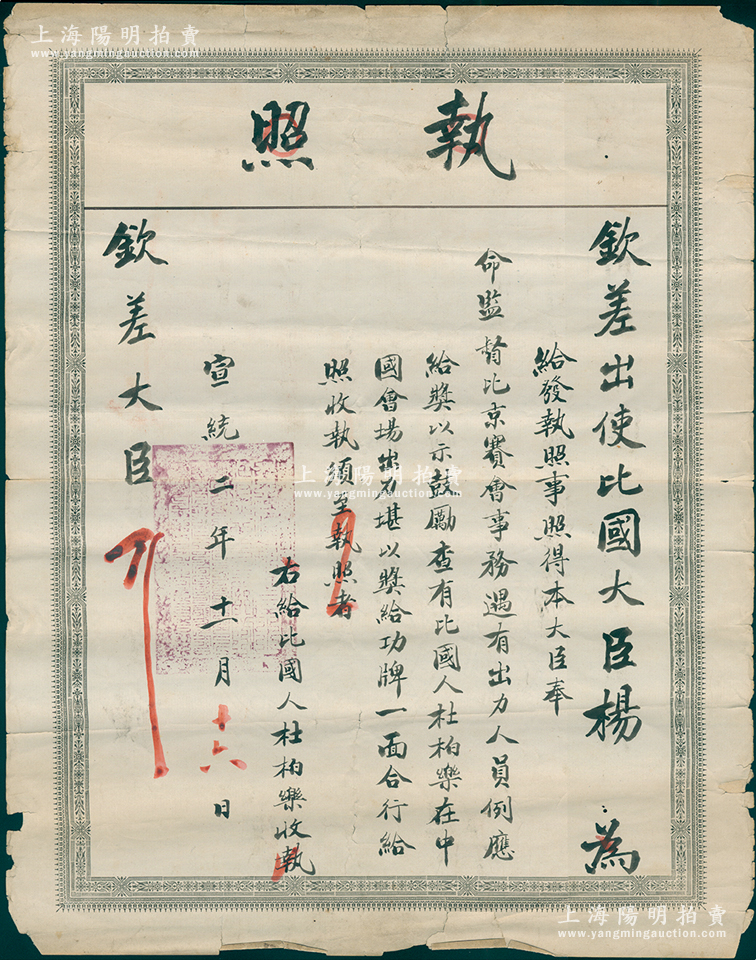 上海陽明拍賣
www.yangmingauction.com
執照
欽差出使比國大臣楊 為
給發執照事照得本大臣奉
命監督比京賽會事務遇有出力人員例應
給獎以示鼓勵查有比國人杜柏樂在中
國會場出力堪以獎給功牌一面合行給
照收執須至執照者
右給比國人杜柏樂收執
宣統二年十一月十六日
欽差大臣
上海陽明拍賣
www.yangmingauction.com
上海陽明拍賣
www.yangmingauction.com